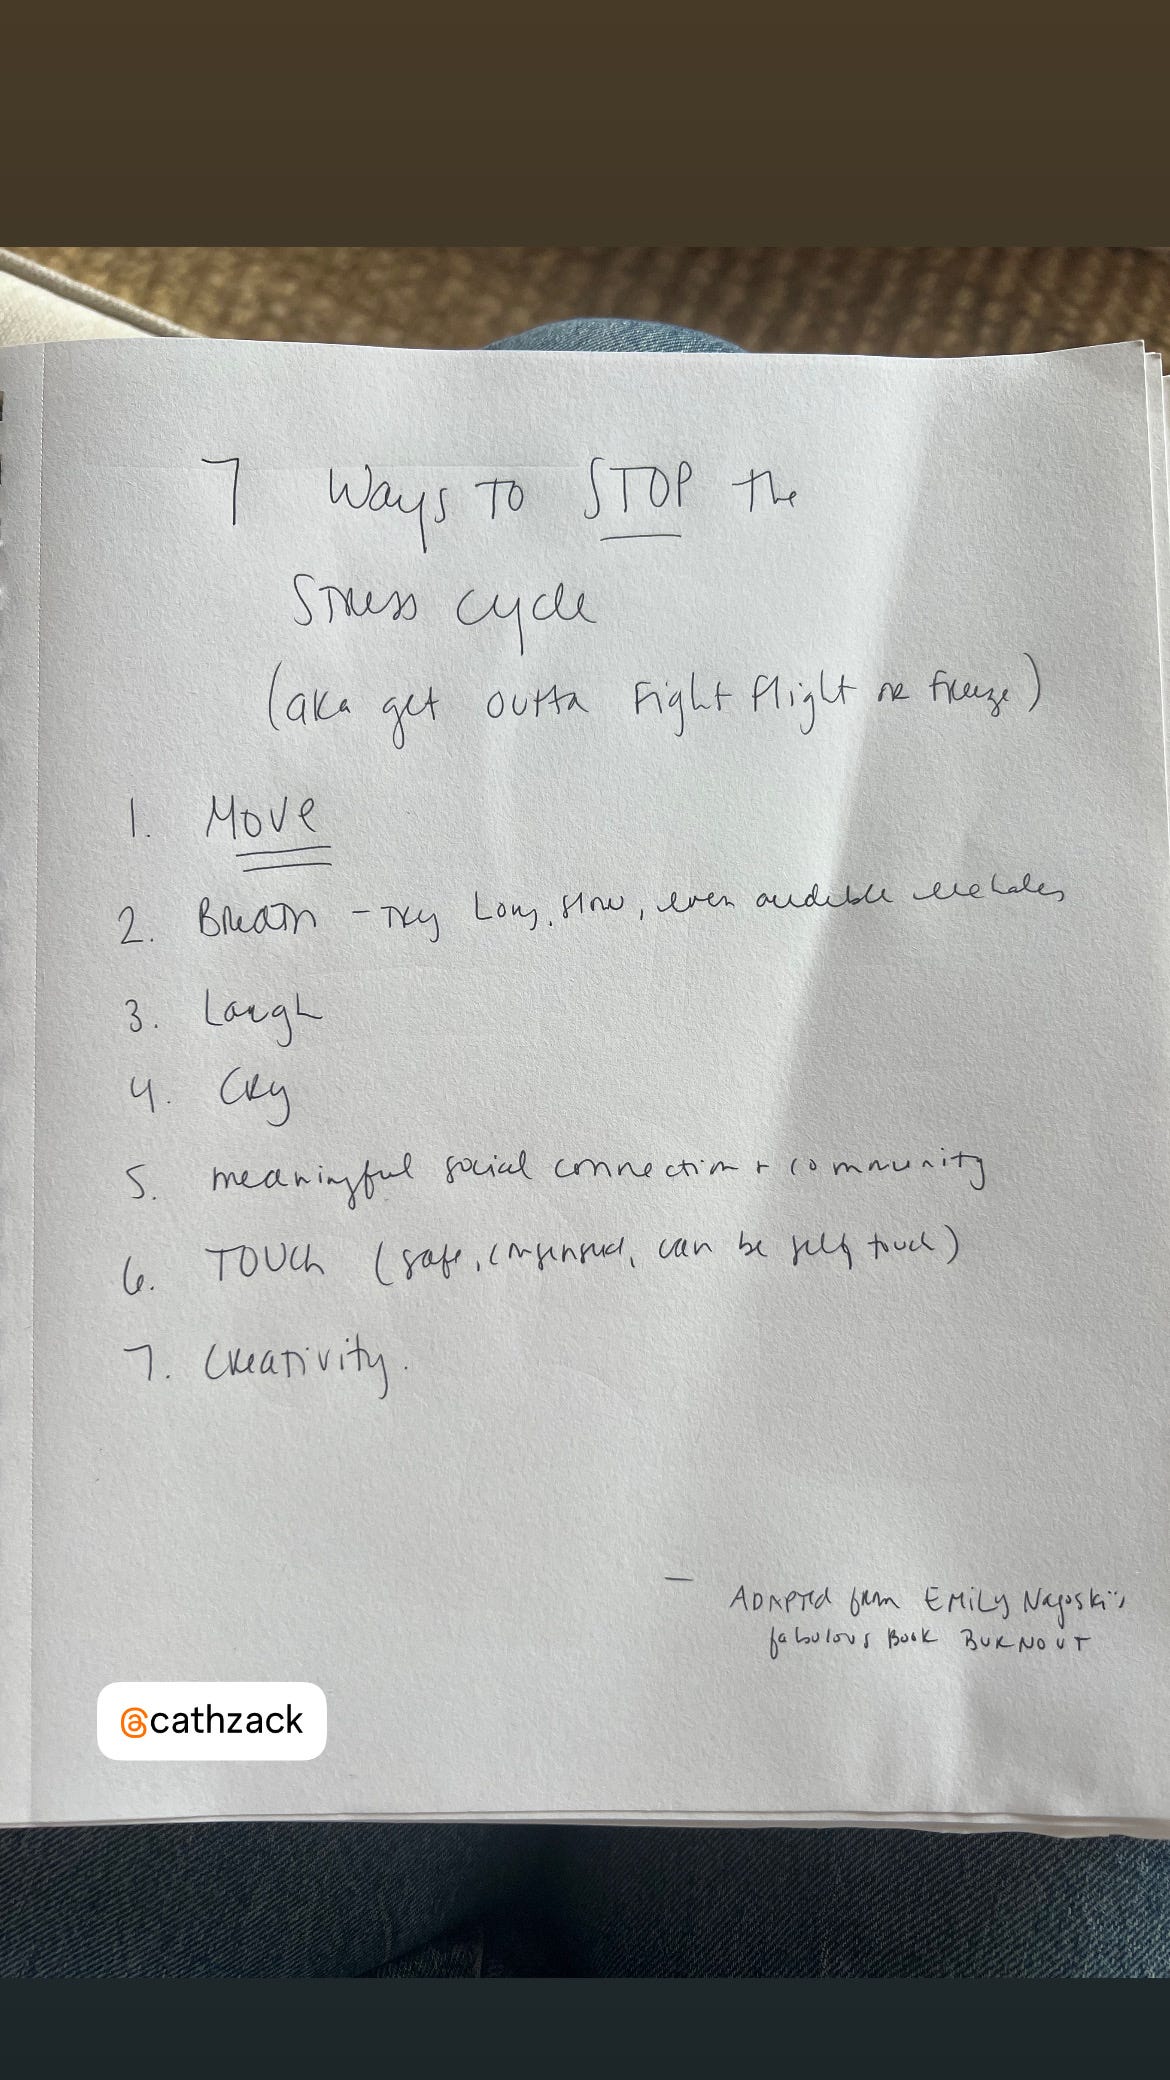 7 Ways TO STOP the
Stress cycle
(aka get outta Fight flight or freeze)
1. Move
2. Breath - Try Long, slow, even audible exhales
3. Laugh
4. Cry
5. meaningful social connection + community
6. TOUCH (safe, consensual, can be self touch)
7. Creativity.
— ADAPTed from EMiLy Nagoski's
fabulous Book BURNOUT
@cathzack